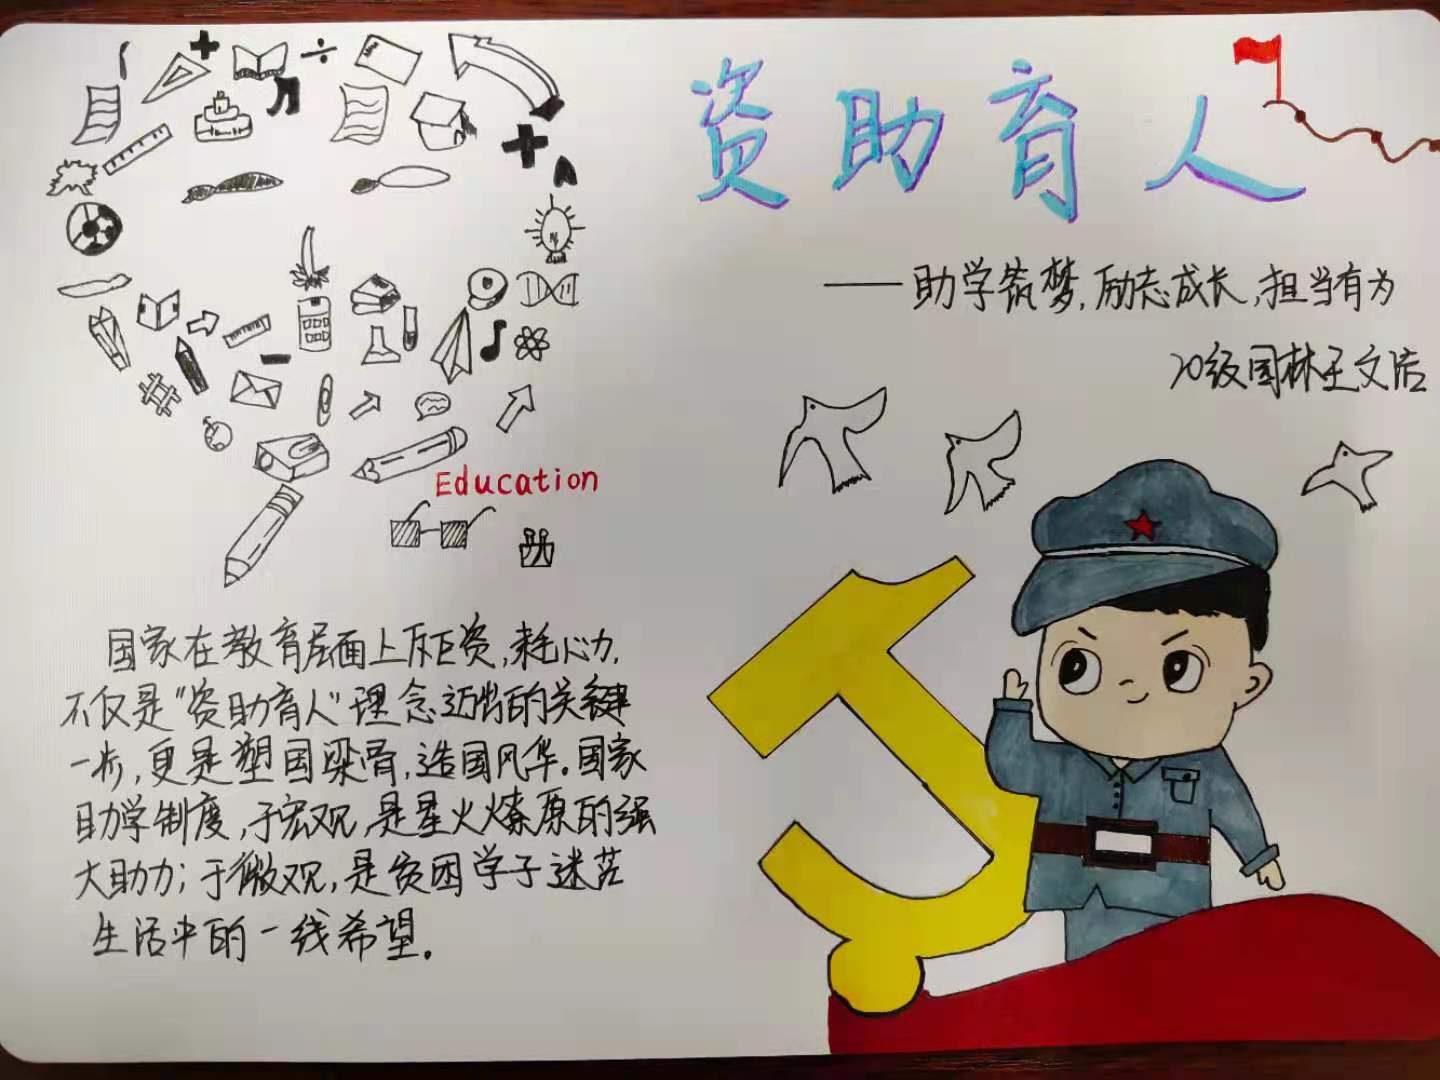 资助育人
——助学筑梦,励志成长,担当有为
20级园林王文洁
Education
国家在教育层面上斥巨资,耗心力,
不仅是"资助育人"理念迈出的关键
一步,更是塑国梁骨,造国风华。国家
助学制度,于宏观,是星火燎原的强
大助力;于微观,是贫困学子迷茫
生活中的一线希望。